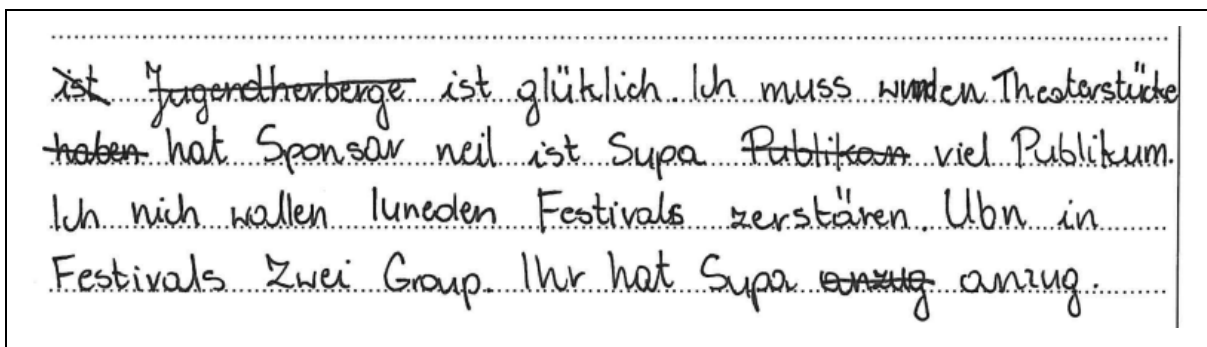 ist Jugendherberge ist glüklich. Ich muss wurden Theaterstücke
haben hat Sponsor neil ist Supa Publikan viel Publikum.
Ich nich wollen luneden Festivals zerstären. Ubn in
Festivals Zwei Group. Ihr hat Supa anzug anzug.